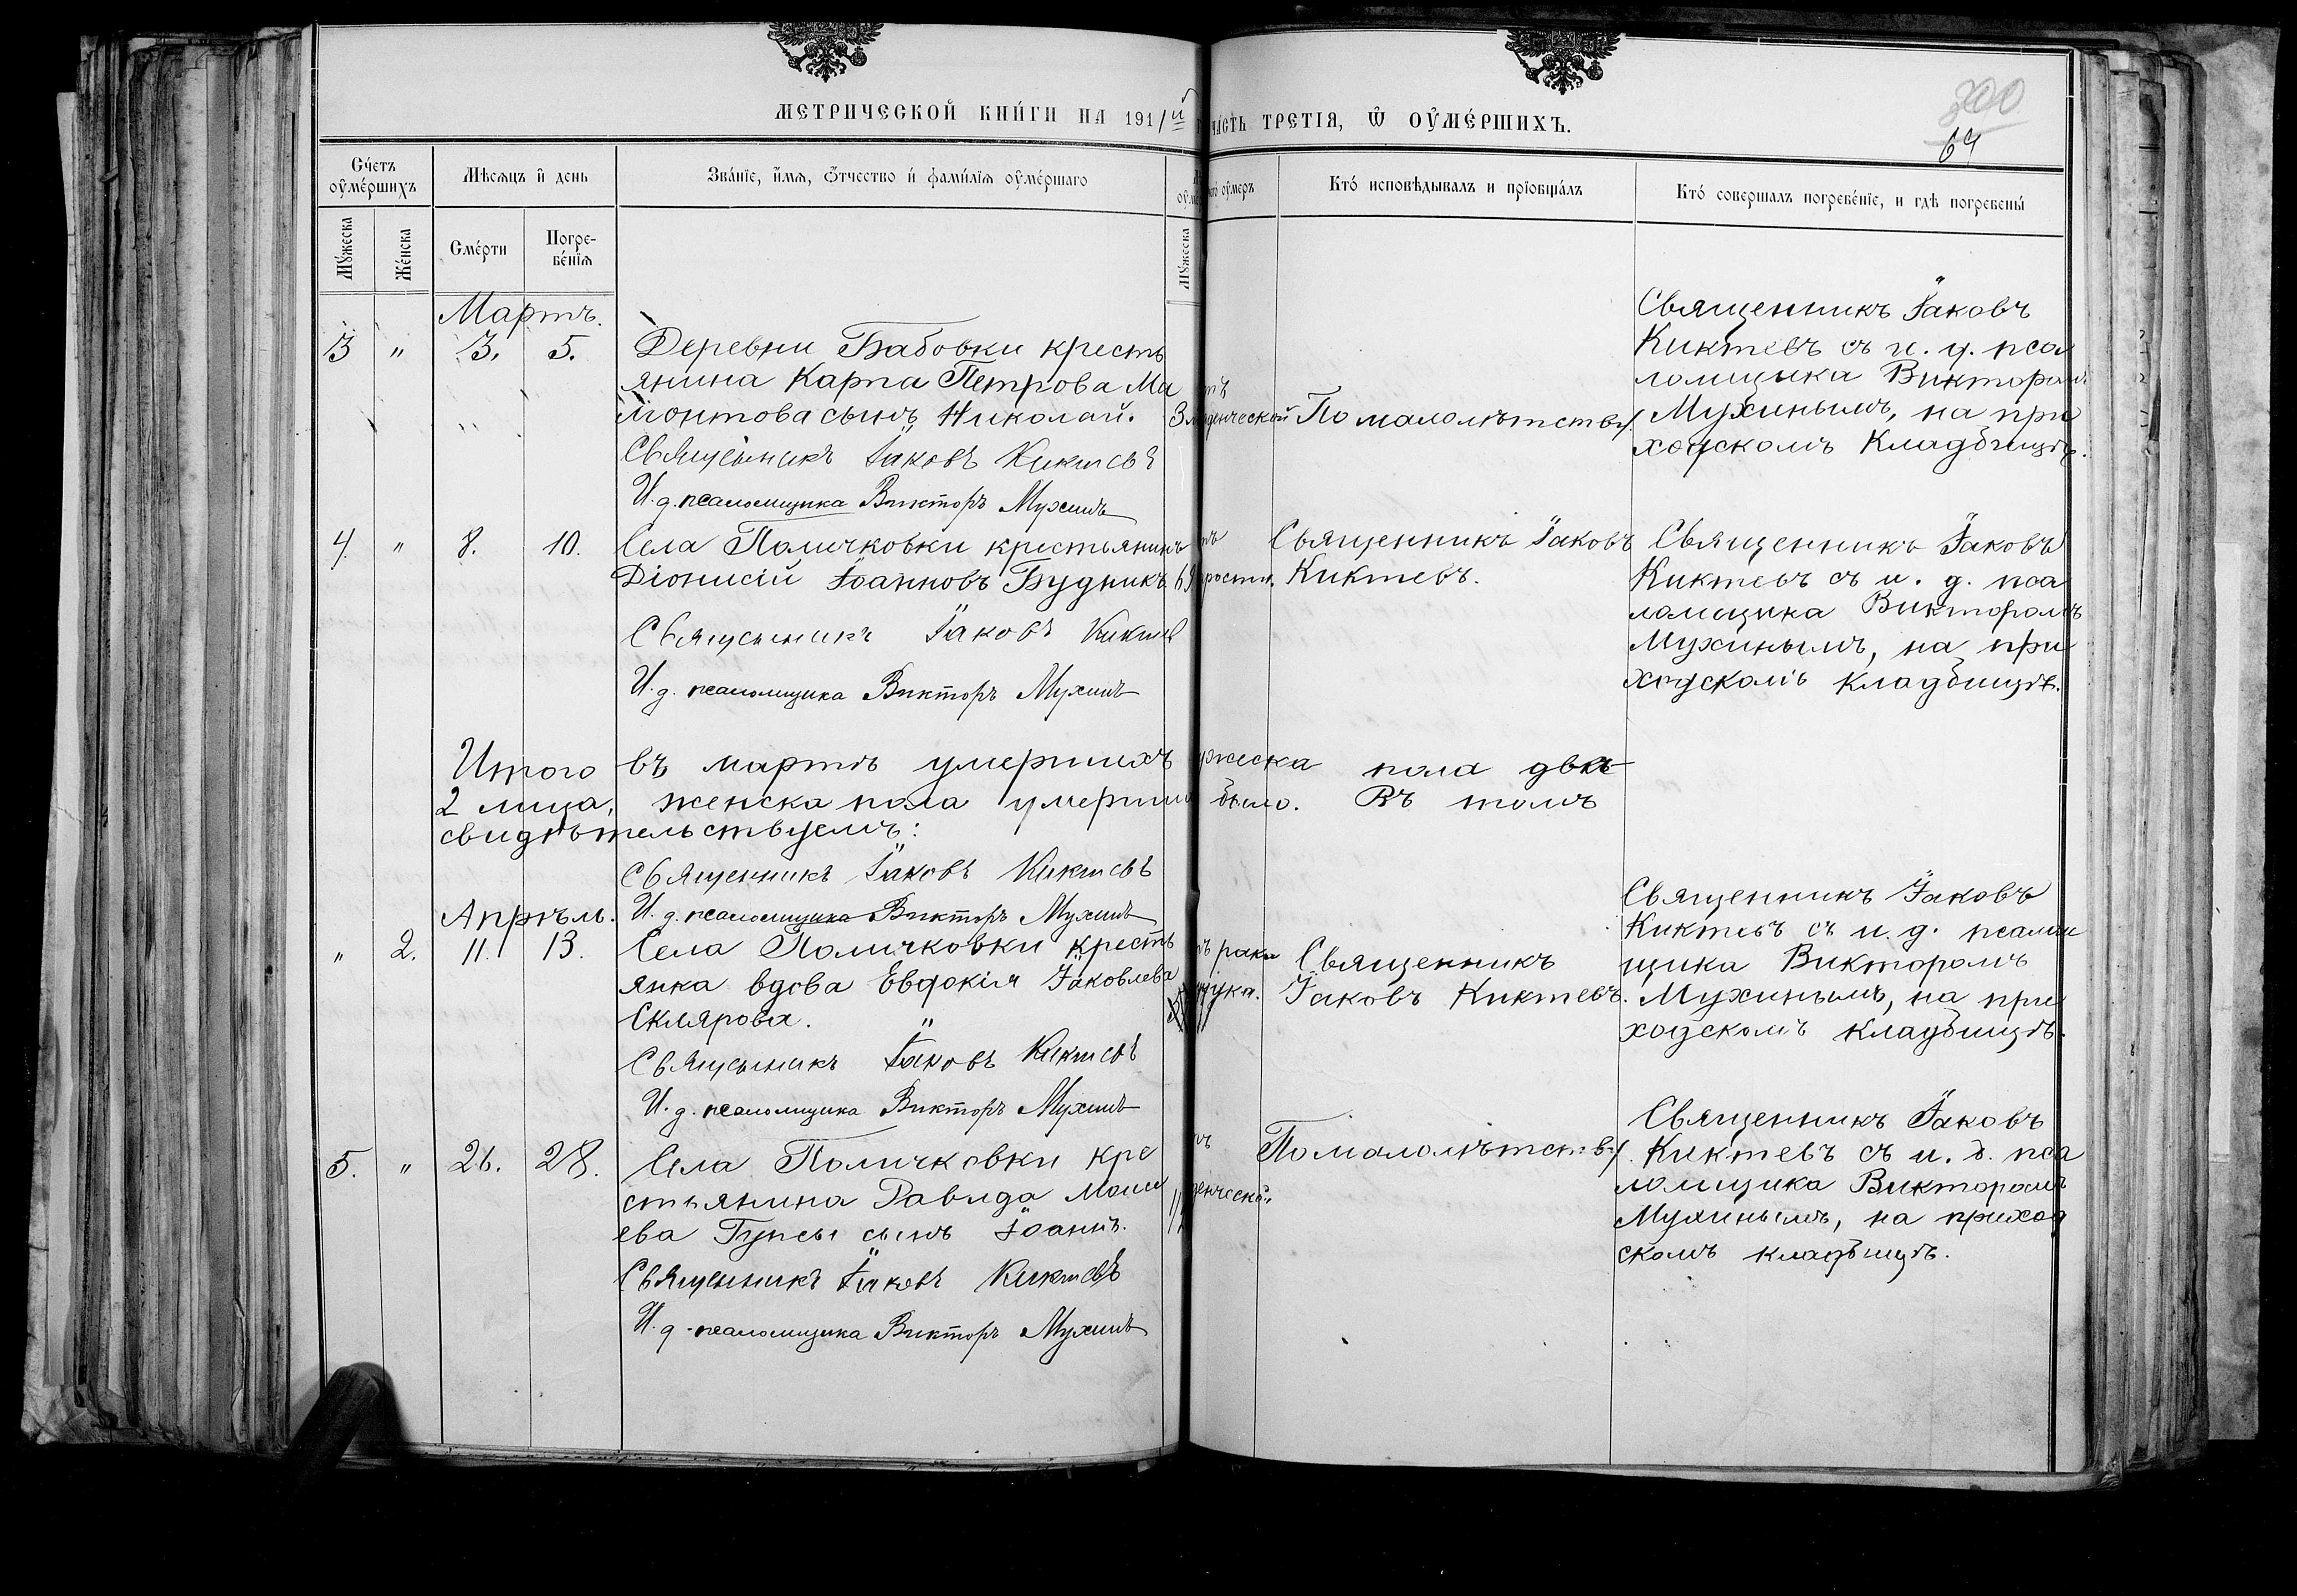 МЕТРИЧЕСКОЙ КНИ́ГИ НА 1911й
ЧАСТЬ ТРЕТІЯ, Ѿ ОУМЕ́РШИХЪ.
200
64
Сче́тъ оуме́ршихъ
Мѣсяцъ и день
Зва́ніе, и́мя, о́тчество и фами́лія оуме́ршаго
оумеръ
Кто́ исповѣдывалъ и пріобща́лъ
Кто́ совершалъ погребе́ніе, и гдѣ погребены́
Му́жеска
Же́нска
Сме́рти
Погребе́нія
Му́жеска
Мартъ.
3 " 3. 5.
Деревни Бабовки кресть
янина Карпа Петрова Ма
монтова сынъ Николай.
Священникъ Іаковъ Киктевъ
И. д. псаломщика Викторъ Мухинъ
3
денческой
По малолѣтству.
Священникъ Іаковъ
Киктевъ съ и. д. пса
ломщика Викторомъ
Мухинымъ, на при
ходскомъ кладбищѣ.
4. " 8. 10.
Села Поличковки крестьянинъ
Діонисій Іоанновъ Будникъ
Священникъ Іаковъ Киктев
И. д. псаломщика Викторъ Мухинъ
Священникъ Іаковъ
Киктевъ.
Священникъ Іаковъ
Киктевъ съ и. д. пса
ломщика Викторомъ
Мухинымъ, на при
ходскомъ кладбищѣ.
Итого въ мартѣ умершихъ жеска пола два
2 лица, женска пола умерших было. Въ томъ
свидѣтельствуемъ:
Священникъ Іаковъ Киктевъ
И. д. псаломщика Викторъ Мухинъ
Апрѣль.
" 2. 11. 13.
Села Поличковки кресть
янка вдова Евдокія Іаковлева
Склярова.
Священникъ Іаковъ Киктевъ
И. д. псаломщика Викторъ Мухинъ
рака
Священникъ
Іаковъ Киктевъ.
Священникъ Іаковъ
Киктевъ съ и. д. псалом
щика Викторомъ
Мухинымъ, на при
ходскомъ кладбищѣ.
5. " 26. 28.
Села Поличковки кре
стьянина Давида Моисе
ева Гупсы сынъ Іоаннъ.
Священникъ Іаковъ Киктевъ
И. д. псаломщика Викторъ Мухинъ
денческой
По малолѣтству.
Священникъ Іаковъ
Киктевъ съ и. д. пса
ломщика Викторомъ
Мухинымъ, на приход
скомъ кладбищѣ.